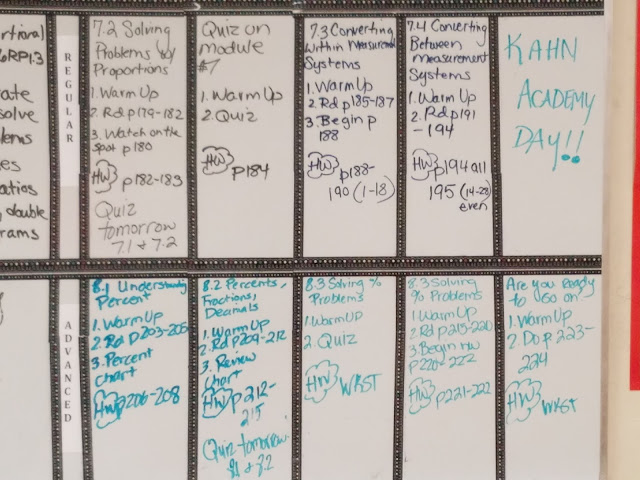 ortional
6RP1.3
ate
solve
lems
es
atios
, double
grams
REGULAR
7.2 Solving
Problems w/
Proportions
1. Warm Up
2. Rd p179-182
3. Watch on the
spot p180
HW p182-183
Quiz
tomorrow
7.1 & 7.2
Quiz on
module
#7
1. Warm Up
2. Quiz
HW p184
7.3 Converting
Within Measurement
Systems
1. Warm Up
2. Rd p185-187
3. Begin p
188
HW p188-
190 (1-18)
7.4 Converting
Between
Measurement
Systems
1. Warm Up
2. Rd p191
-194
HW p194 all
195 (14-28)
even
KAHN
ACADEMY
DAY!!
ADVANCED
8.1 Understanding
Percent
1. Warm Up
2. Rd p203-206
3. Percent
Chart
HW p206-208
8.2 Percents,
Fractions,
Decimals
1. Warm Up
2. Rd p209-212
3. Review
Chart
HW p212-
215
Quiz tomorrow
& 8.2
8.3 Solving %
Problems
1. Warm Up
2. Quiz
HW WKST
8.3 Solving
% Problems
1. Warm Up
2. Rd p215-220
3. Begin HW
p220-222
HW p221-222
Are you Ready
to Go on?
1. Warm Up
2. Do p 223-
224
HW WKST